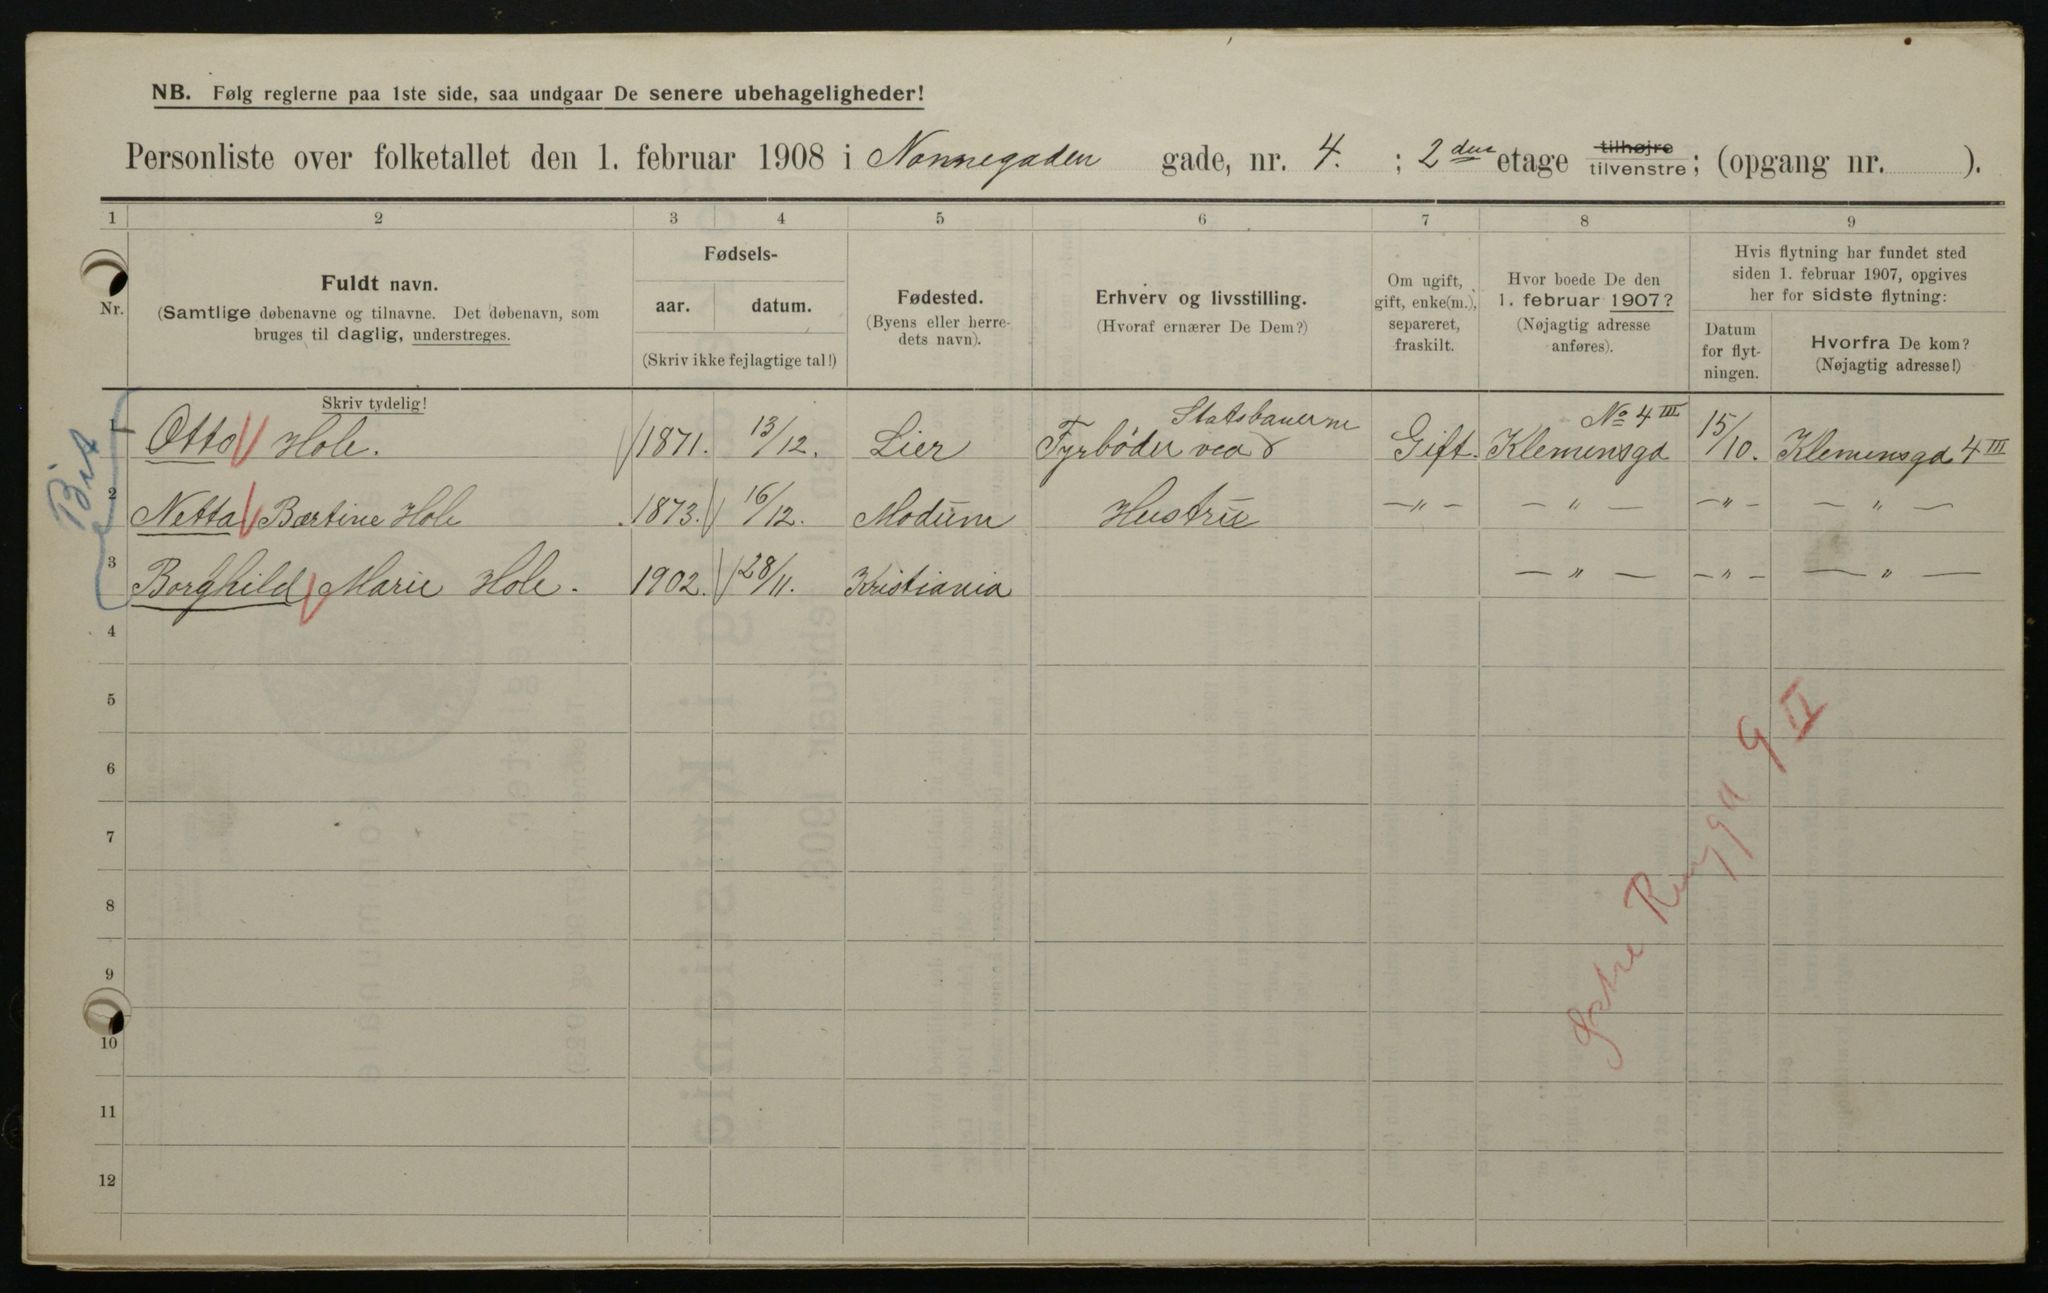 NB. Følg reglerne paa 1ste side, saa undgaar De senere ubehageligheder!
Personliste over folketallet den 1. februar 1908 i Nonnegaden gade, nr. 4. ; 2den etage tilhøjre tilvenstre; (opgang nr. ).
1 2 3 4 5 6 7 8 9
Nr.
Fuldt navn.
(Samtlige døbenavne og tilnavne. Det døbenavn, som
bruges til daglig, understreges.
Skriv tydelig!
Fødsels-
aar. datum.
(Skriv ikke fejlagtige tal!)
Fødested.
(Byens eller herre-
dets navn).
Erhverv og livsstilling.
(Hvoraf ernærer De Dem?)
Om ugift,
gift, enke(m.),
separeret,
fraskilt.
Hvor boede De den
1. februar 1907?
(Nøjagtig adresse
anføres).
Hvis flytning har fundet sted
siden 1. februar 1907, opgives
her for sidste flytning:
Datum
for flyt-
ningen.
Hvorfra De kom?
(Nøjagtig adresse!)
1 Otto Hole. 1871. 13/12. Lier Fyrbøder ved Statsbanerne Gift. Klemensgd No 4 III 15/10. Klemensgd 4 III
2 Netta Bærtine Hole 1873. 16/12. Modum Hustru —"— — " — —"— — " —
3 Borghild Marie Hole. 1902. 28/11. Kristiania — " — —"— — " —
4
5
6
7
8
9
10
11
12
9 II